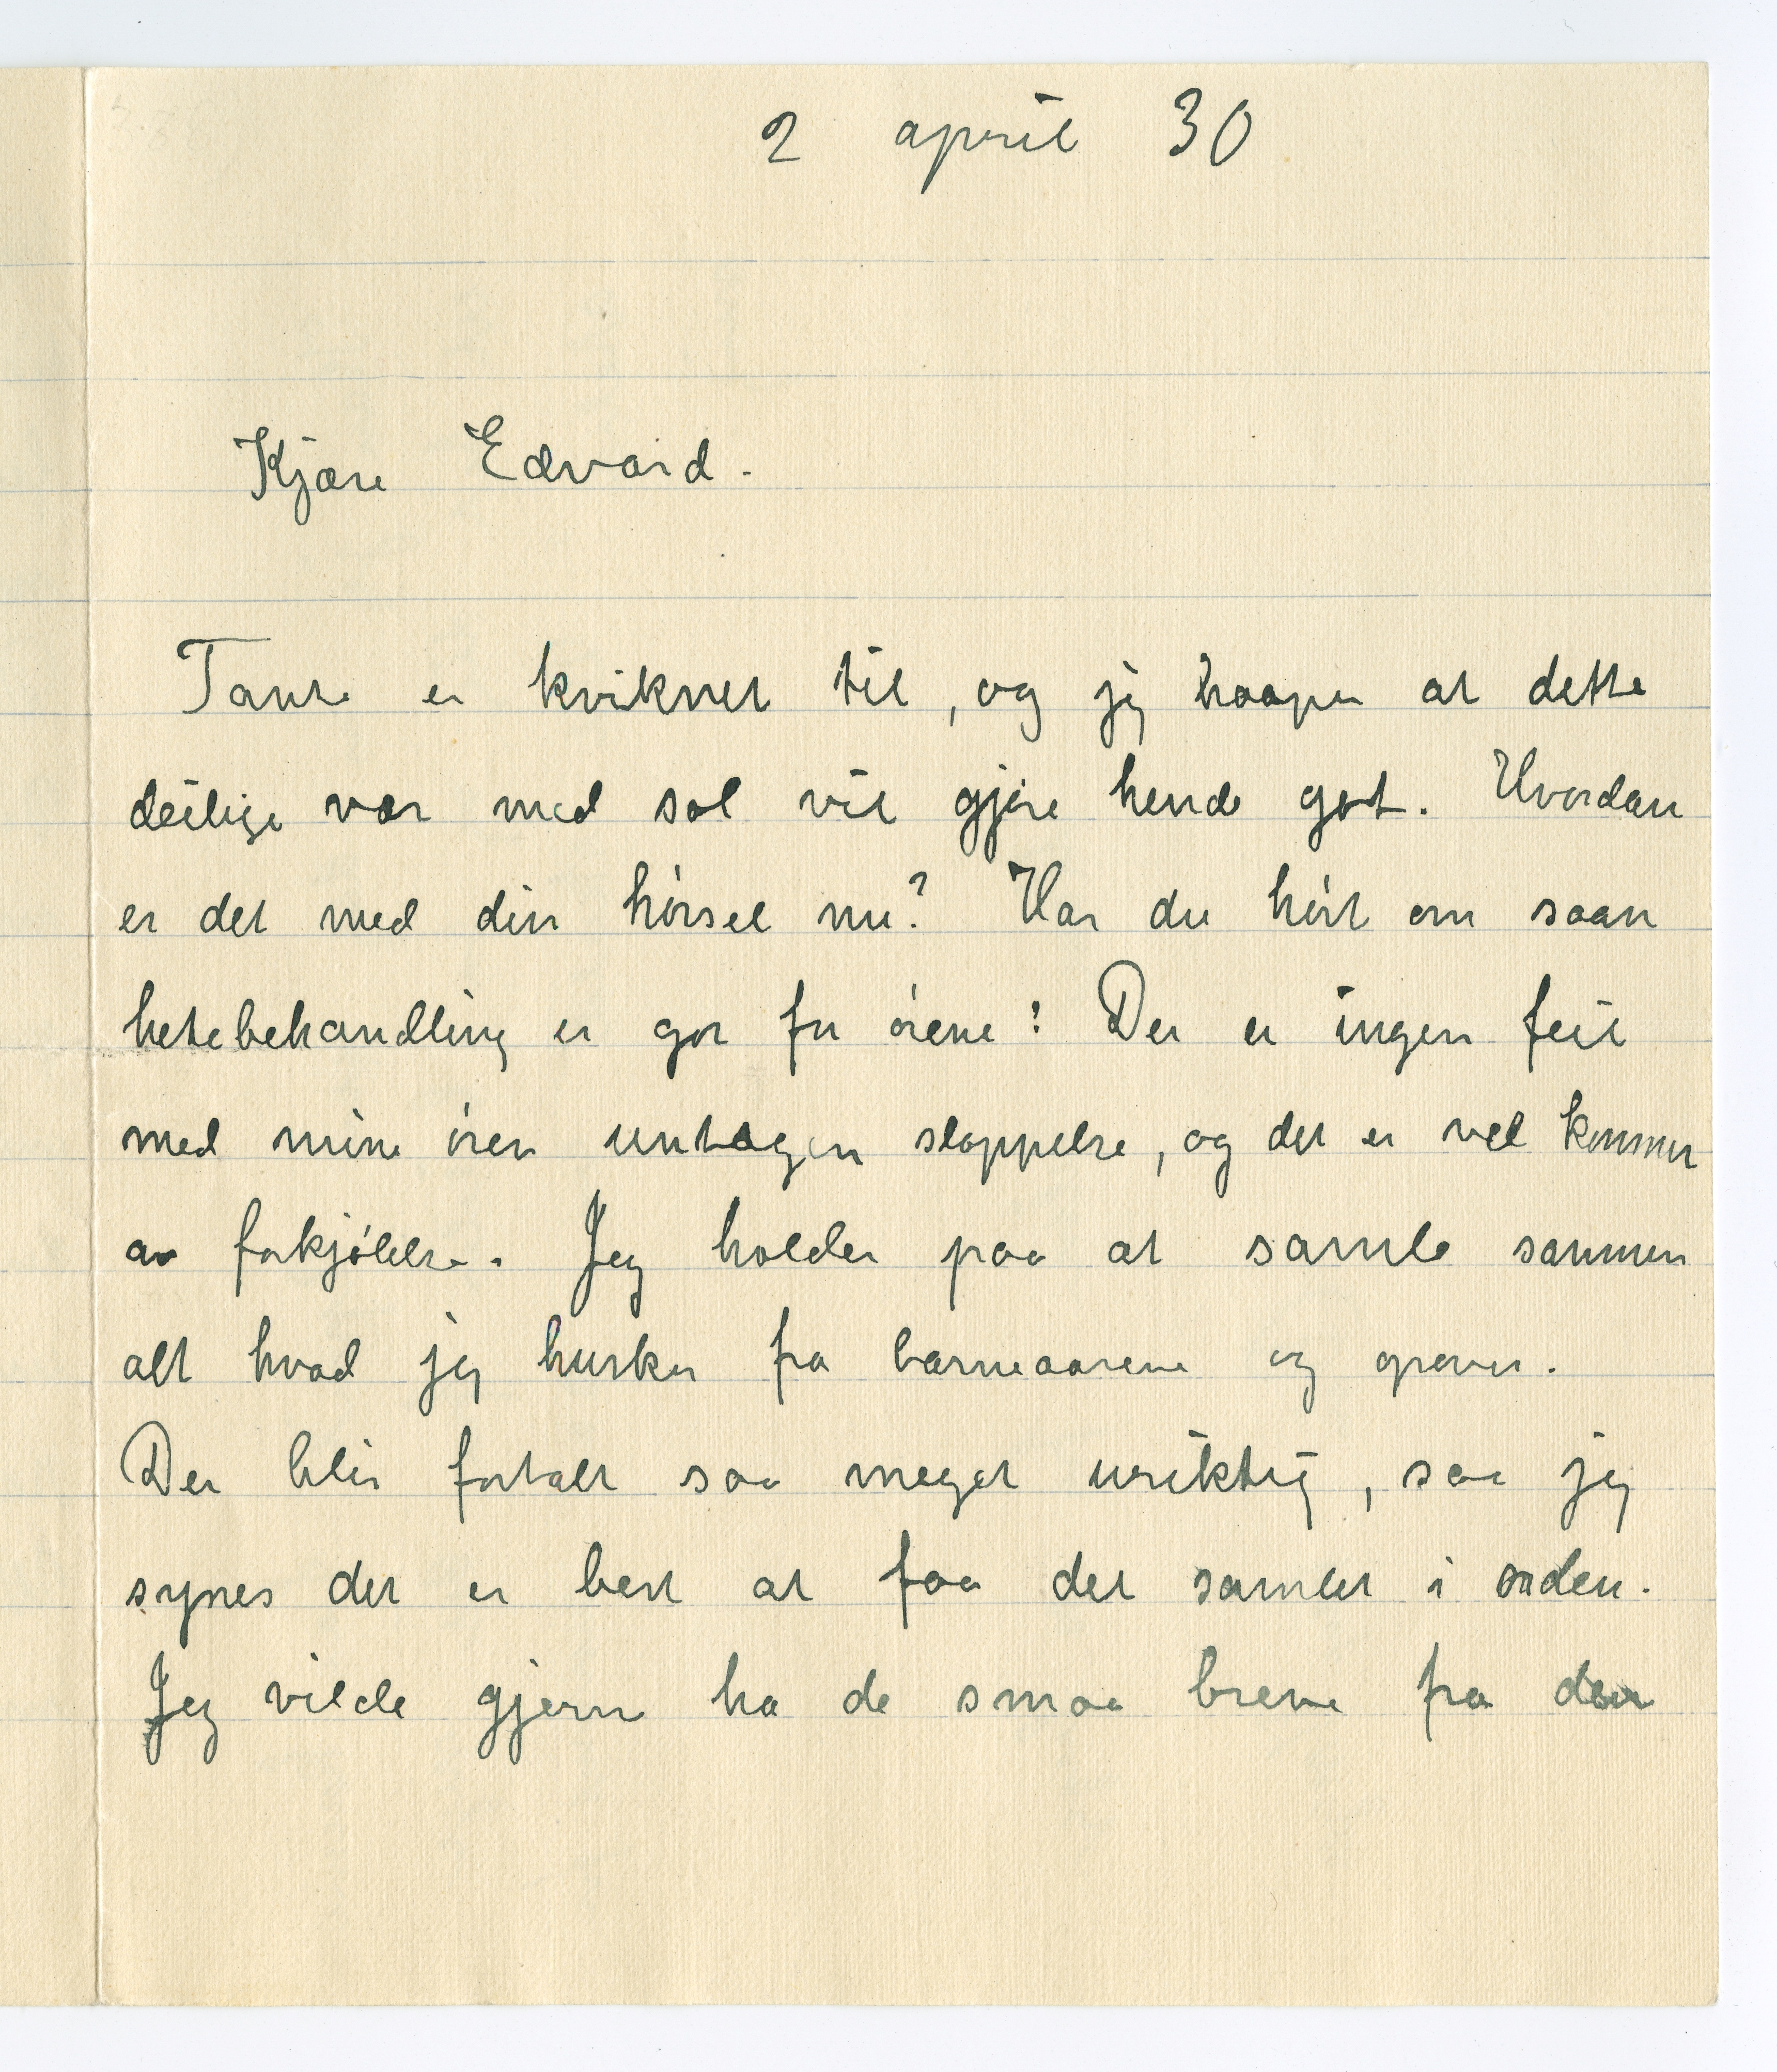 2 april 30
Kjære Edvard.
Tante er kviknet til, og jeg haaper at dette
deilige vær med sol vil gjøre hende got. Hvordan
er det med din hørsel nu? Har du hørt om saan
hetebehandling er got for ørene? Der er ingen feil
med mine ører untagen sloppelse, og det er vel kommet
av forkjølelse. Jeg holder paa at samle sammen
alt hvad jeg husker fra barneaarene og
Der blir fortalt saa meget uriktig, saa jeg
synes det er best at faa det samlet i orden.
Jeg vilde gjerne ha de smaa brevene fra den